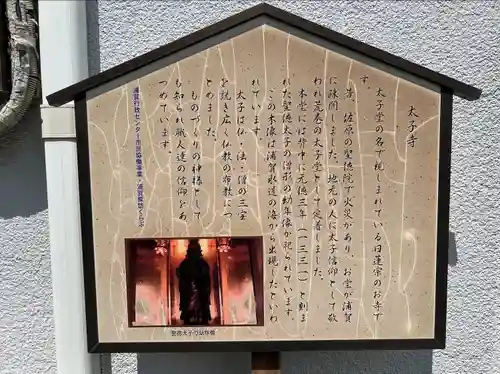 太子寺
太子堂の名で親しまれている日蓮宗のお寺です。
昔、佐原の聖徳院で火災があり、お堂が浦賀
に疎開しました。地元の人に太子信仰として敬
われ荒巻の太子堂として定着しました。
本堂には背中に元徳三年（一三三一）と刻ま
れた聖徳太子の僧形の幼年像が祀られています。
この木像は浦賀水道の海から出現したといわ
れています。
太子は仏・法・僧の三宝
を説き広く仏教の布教につ
とめました。
ものづくりの神様として
も知られ職人達の信仰をあ
つめています。
浦賀行政センター市民協働事業・浦賀探訪くらぶ
聖徳太子の幼年像